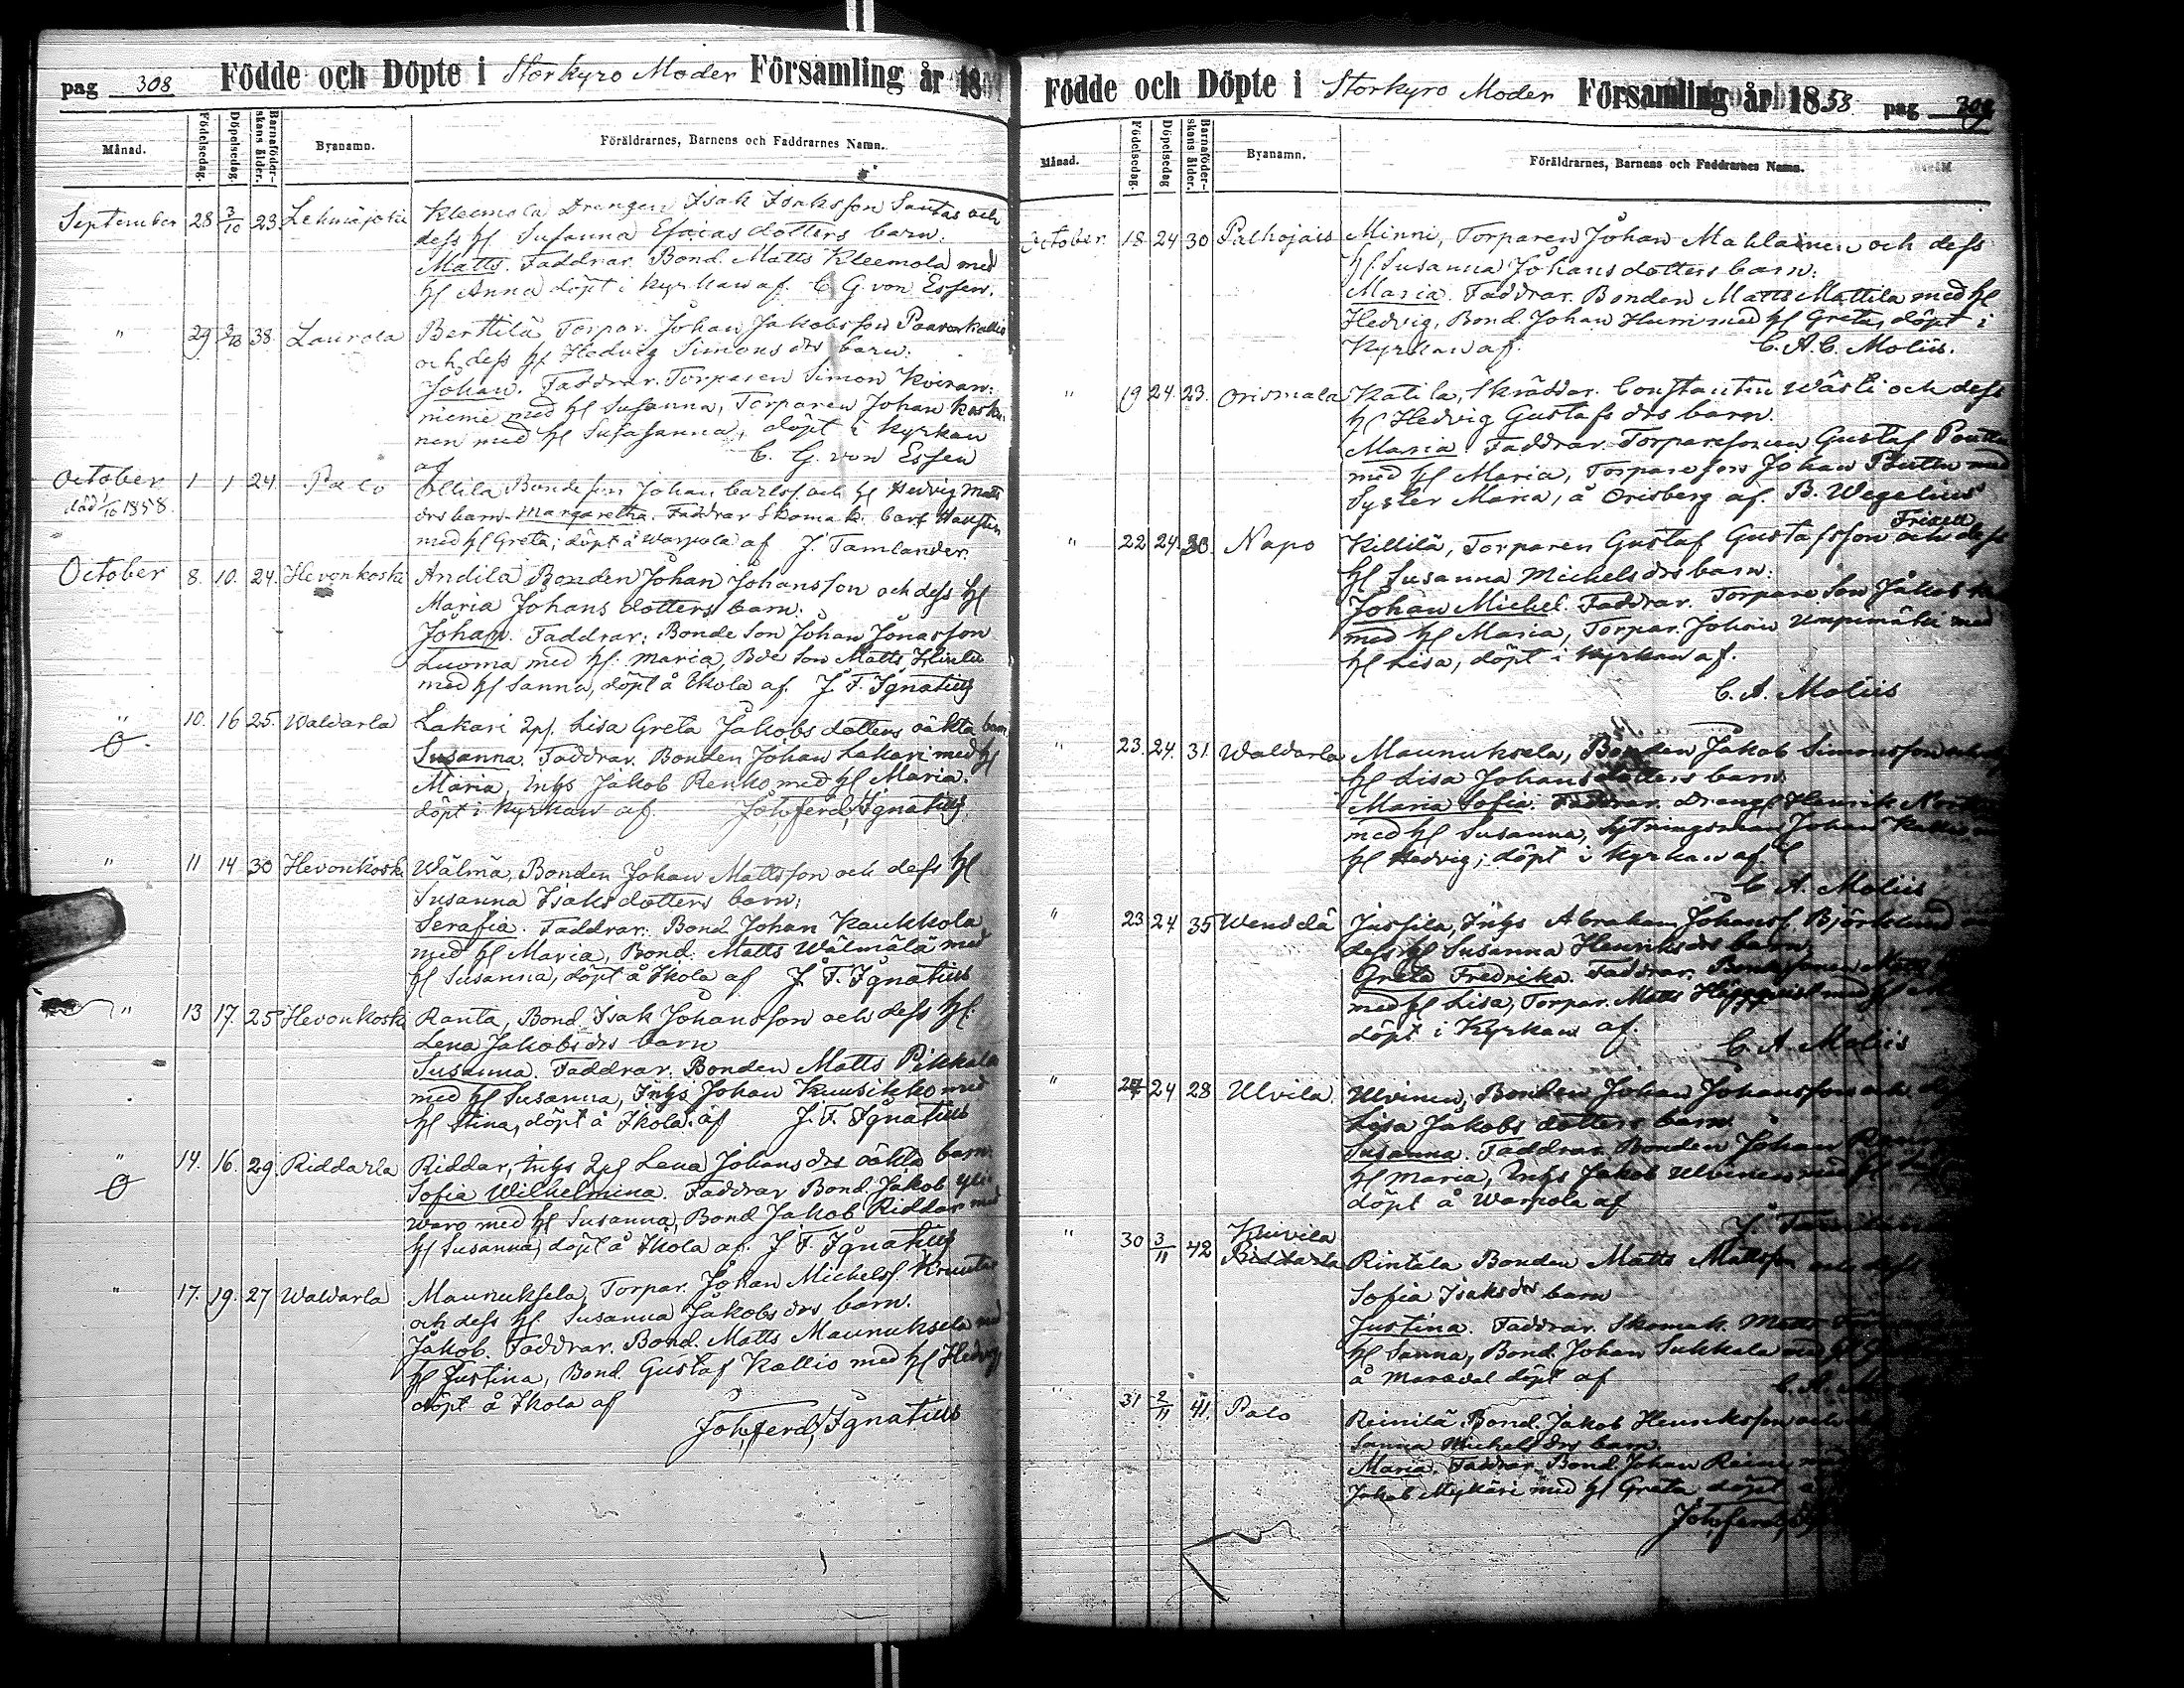 pag 308 Födde och Döpte i Storkyro Moder Församling år 18
Månad.
Födelsedag.
Döpelsedag.
Barnaföder-
skans ålder.
Byanamn.
Föräldrarnes, Barnens och Faddrarnes Namn.
September 28 3/10 23 Lehmäjoki Kleemola Drengen Isak Isaksson Santas och
dess H Susanna Esaias dotters barn.
Matts. Faddrar. Bond. Matts Kleemola med
H Anna döpt i Kyrkan af. C. G. von Essen.
" 29 3/10 38. Laurola Berttilä Torpar. Johan Jakobsson Paavonkallio
och dess H Hedvig Simons drs barn.
Johan. Faddrar. Torparen Simon Koivan:
niemi med H Susanna, Torparen Johan Koski
nen med H Susasanna, döpt i Kyrkan
af C. G. von Essen
October 1 1 24. Palo Ollila Bondeson Johan Carlss. och H Hedvig Matts
död 1/10 1858. drs barn. Margaretha. Faddrar Skomak. Carl
med H Greta; döpt å Warpola af J. Tamlander.
October 8. 10. 24. Hevonkoski Andila Bonden Johan Johansson och dess H
Maria Johans dotters barn.
Johan. Faddrar: Bonde Son Johan Jonasson
Luoma med H. Maria, Bde Son Matts
med H Sanna, döpt å Ikola af. J. F. Ignatius
" 10. 16 25. Waldarla Lakari Lisa Greta Jakobs dotters oäkta barn
Susanna. Faddrar. Bonden Johan Lakari med H
Maria, Inhs Jakob Renko med H Maria.
döpt i Kyrkan af. Joh. Ferd. Ignatius
" 11 14 30 Hevonkoski Wälmä, Bonden Johan Mattsson och dess H
Susanna Isaks dotters barn;
Serafia. Faddrar. Bond. Johan Kaukkola
med H Maria, Bond. Matts Wälmälä med
H Susanna, döpt å Ikola af J. F. Ignatius
" 13 17. 25 Hevonkoski Ranta, Bond. Isak Johansson och dess H.
Lena Jakobs drs barn
Susanna. Faddrar. Bonden Matts Pikkala
med H Susanna, Inhs Johan Kuusikko med
H Stina, döpt å Ikola af J. F. Ignatius
" 14. 16. 29. Riddarla Riddar, Inhs Lena Johans drs oäkta barn.
Sofia Wilhelmina. Faddrar Bond. Jakob Yli
waro med H Susanna, Bond. Jakob Riddar med
H Susanna, döpt å Ikola af. J. F. Ignatius
" 17. 19. 27 Waldarla Maunuksela, Torpar. Johan Michelss.
och dess H. Susanna Jakobs drs barn.
Jakob. Faddrar. Bond. Matts Maunuksela med
H Justina, Bond. Gustaf Kallio med H Hedvig
döpt å Ikola af
Joh. Ferd. Ignatius
Födde och Döpte i Storkyro Moder Församling år 1858. pag 309
Månad.
Födelsedag.
Döpelsedag
Barnaföder-
skans ålder.
Byanamn.
Föräldrarnes, Barnens och Faddrarnes Namn.
October 18 24 30 Palhojais Minni, Torparen Johan Maklainen och dess
H. Susanna Johans dotters barn:
Maria. Faddrar. Bonden Matts Mattila med H
Hedvig, Bond. Johan med H Greta, döpt i
Kyrkan af. C. A. C. Moliis.
" 19 24. 23. Orismala Katila, Skräddar. Constantin Wästi och dess
H Hedvig Gustafs drs barn.
Maria. Faddrar. Torparesonen Gustaf Pouttu
med H Maria, Torpareson Johan Pouttu med
Syster Maria, å Orisberg af B. Wegelius
" 22 24. 30. Napo Killilä, Torparen Gustaf Gustafsson Frisett och dess
H Susanna Michels drs barn:
Johan Michel. Faddrar. Torpare Son Jakob
med H Maria, Torpar. Johan med
H Lisa, döpt i Kyrkan af.
C. A. Moliis
" 23. 24. 31. Waldarla Maunuksela, Bonden Jakob Simonsson och
H Lisa Johans dotters barn
Maria Sofia. Faddrar. Drengs Henrik
med H Susanna, Sytningsman Johan
H Hedvig; döpt i Kyrkan af
C. A. Moliis
" 23 24 35 Wendelä Jussila, Inhs Abraham Johanss. Björklund
dess H Susanna Henriks drs barn,
Greta Fredrika. Faddrar. Bondesonen Matts
med H Lisa, Torpar. Matts med H
döpt i Kyrkan af.
C. A. Moliis
" 24 24 28 Ulvila. Ulvinen, Bonden Johan Johansson och
Lisa Jakobs dotters barn
Susanna. Faddrar. Bonden Johan
H Maria, Inhs Jakob Ulvinen med H
döpt å Warpola af
J.
" 30 3/11 42 Kuivila
Riddarla Rintala Bonden Matts Mattsson och dess
Sofia Isaks drs barn
Justina. Faddrar. Skomak. Matts
H Sanna, Bond. Johan Sukkala med H
å döpt af C. A.
" 31 2/11 41. Palo Reinilä Bond. Jakob Henriksson och
Sanna Michels drs barn.
Maria. Faddrar. Bond. Johan
Jakob med H Greta döpt
Joh. Ferd.